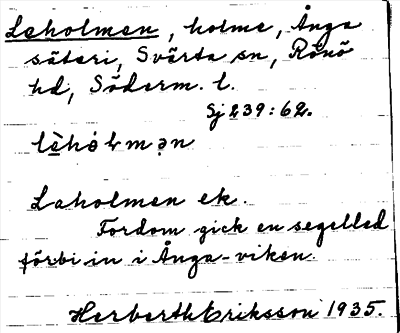 Laholmen, holme, Ånga
säteri, Svärta sn, Rönö
hd, Söderm. l.
Sj 239:62.
lὰhȯlmən
Laholmen ek.
Fordom gick en segelled
förbi in i Ånga-viken.
Herberth Eriksson 1935.